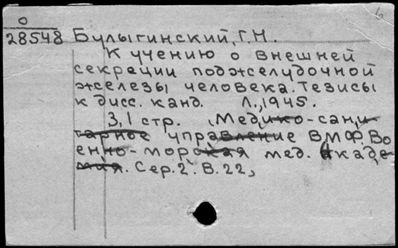 О
28548 Булыгинский, Г.Н.
К учению о внешней
секреции поджелудочной
железы человека. Тезисы
к дисс. канд. Л., 1945.
3,1 стр. Медико-сани
тарное управление ВМФ. Во
енно-морская мед. акаде
мия. Сер. 2. В. 22,